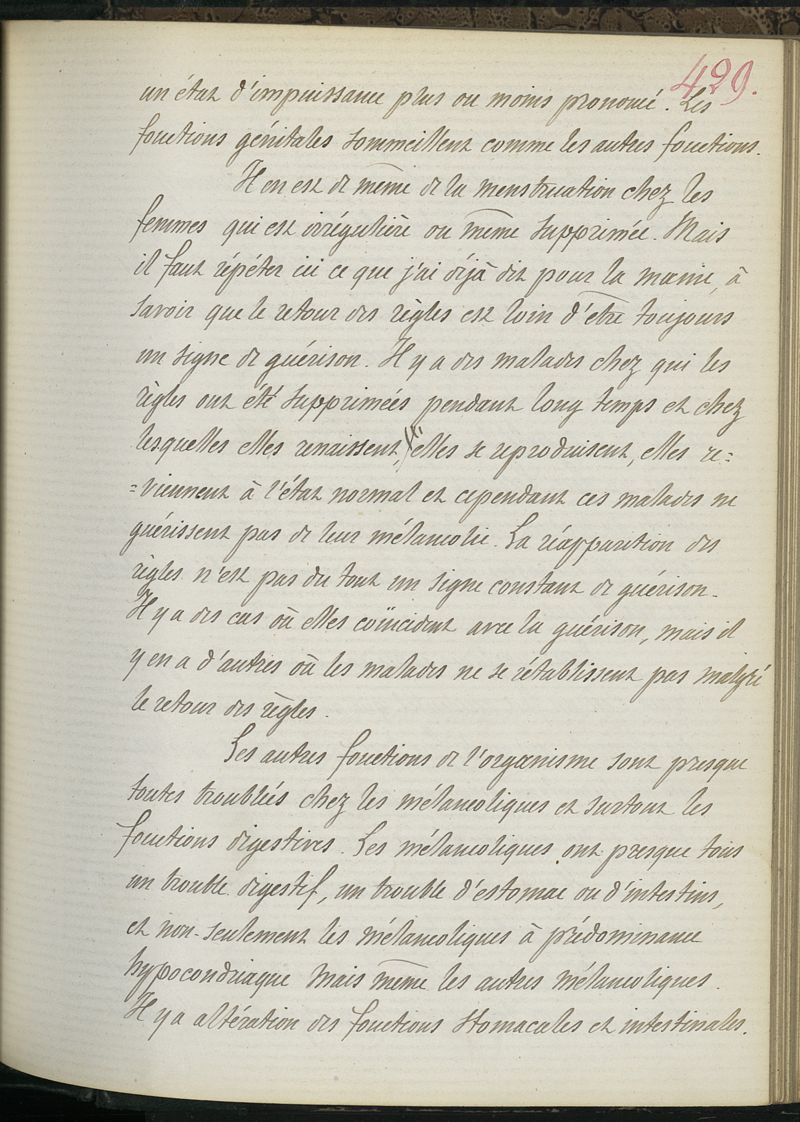 429.
un état d'impuissance plus ou moins prononcé. Les
fonctions génitales sommeillent comme les autres fonctions.
Il en est de même de la menstruation chez les
femmes qui est irrégulière ou même supprimée. Mais
il faut répéter ici ce que j'ai déjà dit pour la manie, à
savoir que le retour des règles est loin d'être toujours
un signe de guérison. Il y a des malades chez qui les
règles ont été supprimées pendant long temps et chez
lesquelles elles renaissent, elles se reproduisent, elles re=
=viennent à l'état normal et cependant ces malades ne
guérissent pas de leur mélancolie. La réapparition des
règles n'est pas du tout un signe constant de guérison.
Il y a des cas où elles coïncident avec la guérison, mais il
y en a d'autres où les malades ne se rétablissent pas malgré
le retour des règles.
Les autres fonctions de l'organisme sont presque
toutes troublées chez les mélancoliques et surtout les
fonctions digestives. Les mélancoliques ont presque tous
un trouble digestif, un trouble d'estomac ou d'intestins,
et non-seulement les mélancoliques à prédominance
hypocondriaque mais même les autres mélancoliques.
Il y a altération des fonctions stomacales et intestinales.